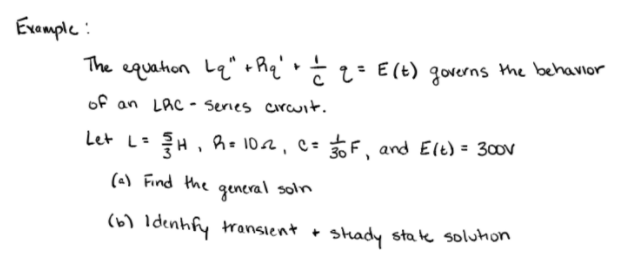 Example:
The equation Lq" + Rq' + 1/C q = E(t) governs the behavior
of an LRC - series circuit.
Let L = 5/3 H, R = 10Ω, C = 1/30 F, and E(t) = 300V
(a) Find the general soln
(b) Identify transient + steady state solution